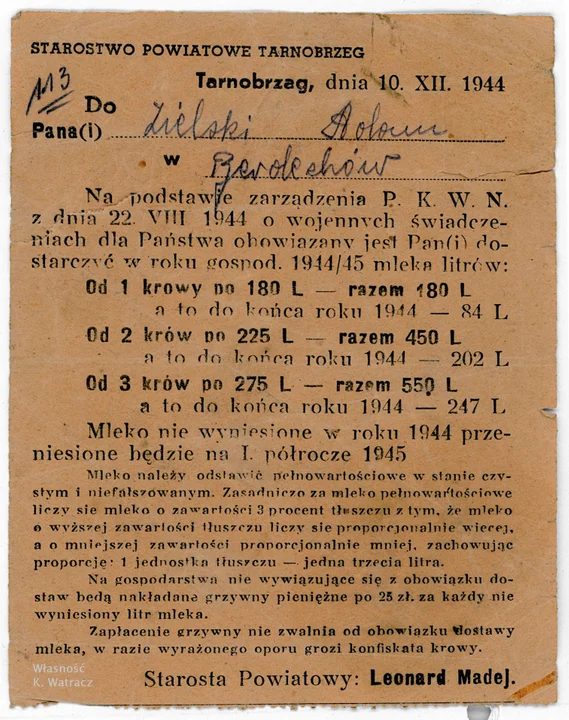 STAROSTWO POWIATOWE TARNOBRZEG
113
Tarnobrzag, dnia 10. XII. 1944
Do
Pana(i) Zielski Adam
w
Na podstawie zarządzenia P. K. W. N.
z dnia 22. VIII 1944 o wojennych świadcze-
niach dla Państwa obowiązany jest Pan(i) do-
starczyć w roku gospod. 1944/45 mleka litrów:
Od 1 krowy po 180 L — razem 180 L
a to do końca roku 1944 — 84 L
Od 2 krów po 225 L — razem 450 L
a to do końca roku 1944 — 202 L
Od 3 krów po 275 L — razem 550 L
a to do końca roku 1944 — 247 L
Mleko nie wyniesione w roku 1944 prze-
niesione będzie na I. półrocze 1945
Mleko należy odstawić pełnowartościowe w stanie czy-
stym i niefałszowanym. Zasadniczo za mleko pełnowartościowe
liczy sie mleko o zawartości 3 procent tłuszczu z tym, że mleko
o wyższej zawartości tłuszczu liczy sie proporcjonalnie wiecej,
a o mniejszej zawartości proporcjonalnie mniej, zachowując
proporcję: 1 jednostka tłuszczu — jedna trzecia litra.
Na gospodarstwa nie wywiązujące się z obowiązku do-
staw bedą nakładane grzywny pieniężne po 25 zł. za każdy nie
wyniesiony litr mleka.
Zapłacenie grzywny nie zwalnia od obowiązku dostawy
mleka, w razie wyrażonego oporu grozi konfiskata krowy.
Własność
K. Watracz
Starosta Powiatowy: Leonard Madej.